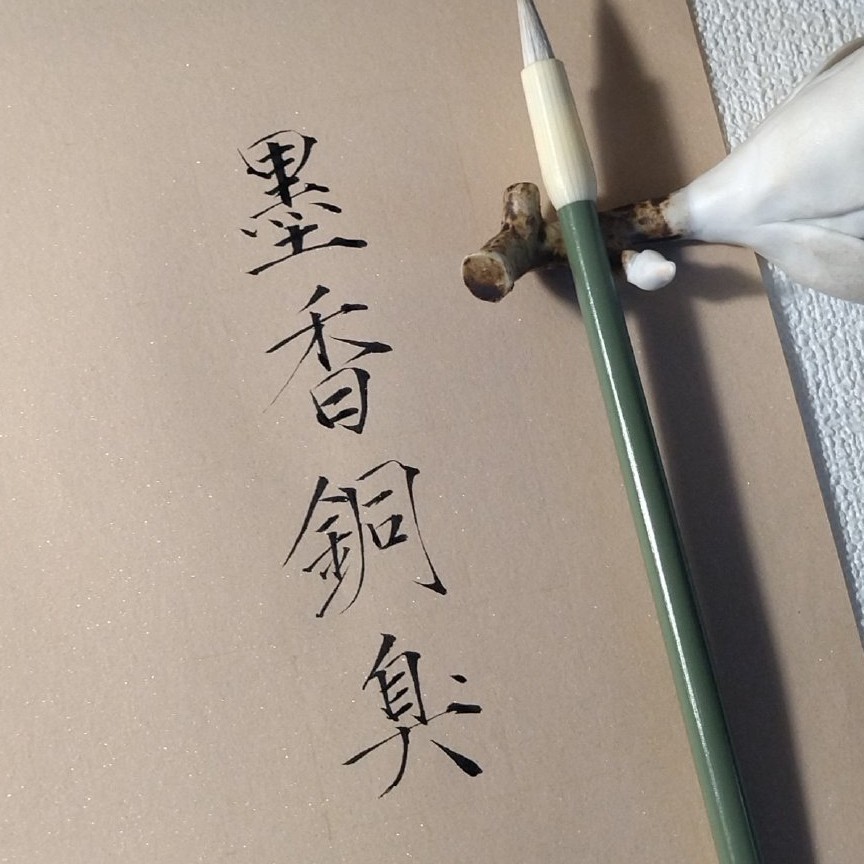 墨香銅臭